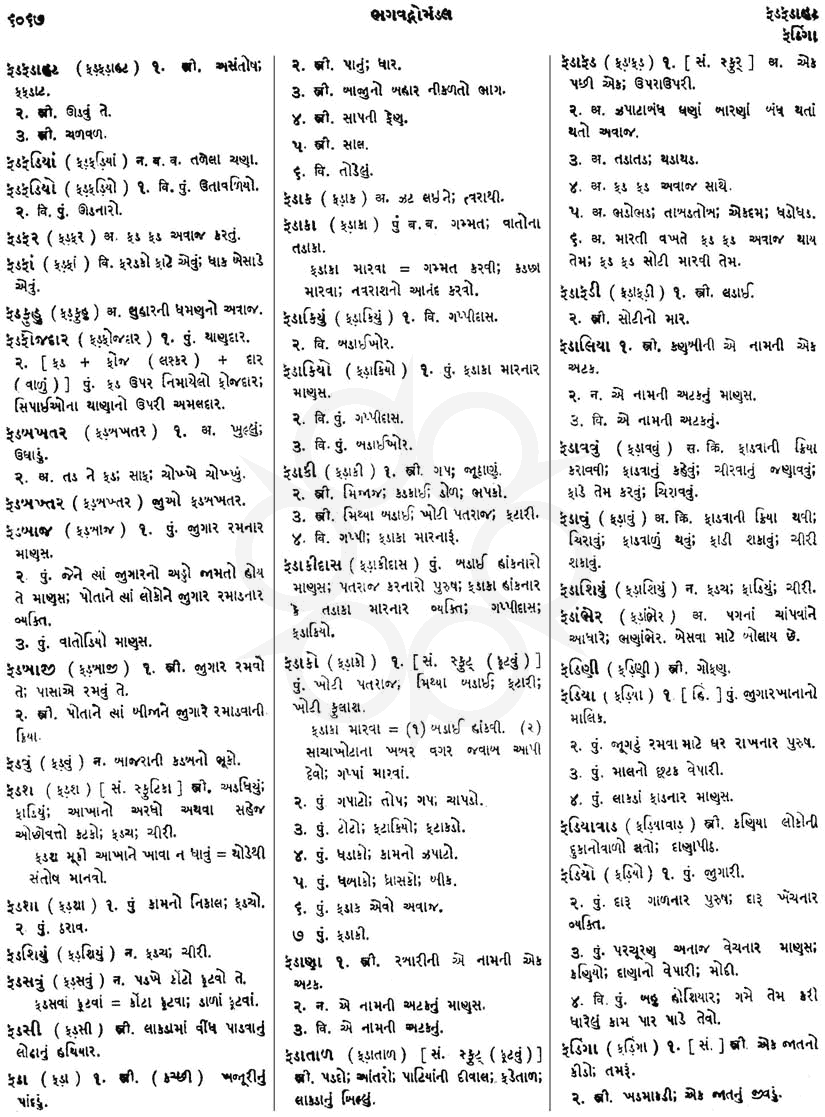 ૬૦૬૭
ભગવદ્ગોમંડલ
ફડફડાહટ
ફડિંગા
ફડફડાહટ ( ફડ્ફડાહટ ) ૧. સ્ત્રી. અસંતોષ;
ફફડાટ.
૨. સ્ત્રી. ઊડવું તે.
૩. સ્ત્રી. ચળવળ.
ફડફડિયાં ( ફડ્ફડિયાં ) ન. બ. વ. તળેલા ચણા.
ફડફડિયો ( ફડ્ફડિયો ) ૧. વિ. પું. ઉતાવળિયો.
૨. વિ. પું. ઊડનારો.
ફડફર ( ફડ્ફર ) અ. ફડ ફડ અવાજ કરતું.
ફડફાં ( ફડ્ફાં ) વિ. ફરડકો કાટે એવું; ધાક બેસાડે
એવું.
ફડફુહુ ( ફડ્ફુહુ ) અ. લુહારની ધમણનો અવાજ.
ફડફોજદાર ( ફડ્ફોજદાર ) ૧. પું. થાણદાર.
૨. [ ફડ + ફોજ ( લશ્કર ) + દાર
( વાળું ) ] પું. ફડ ઉપર નિમાયેલો ફોજદાર;
સિપાઈઓના થાણાનો ઉપરી અમલદાર.
ફડબખતર ( ફડ્બખતર ) ૧. અ. ખુલ્લું;
ઉઘાડું.
૨. અ. તડ ને ફડ; સાફ; ચોખ્ખે ચોખ્ખું.
ફડબખ્તર ( ફડ્બખ્તર ) જુઓ ફડબખતર.
ફડબાજ ( ફડ્બાજ ) ૧. પું. જુગાર રમનાર
માણસ.
૨. પું. જેને ત્યાં જુગારનો અડ્ડો જામતો હોય
તે માણસ; પોતાને ત્યાં લોકોને જુગાર રમાડનાર
વ્યક્તિ.
૩. પું. વાતોડિયો માણસ.
ફડબાજી ( ફડ્બાજી ) ૧. સ્ત્રી. જુગાર રમવો
તે; પાસાએ રમવું તે.
૨. સ્ત્રી. પોતાને ત્યાં બીજાને જુગારે રમાડવાની
ક્રિયા.
ફડવું ( ફડ્વું ) ન. બાજરાની કડબનો ભૂકો.
ફડશ ( ફડ્શ ) [ સં. સ્ફુટિકા ] સ્ત્રી. અડધિયું;
ફાડિયું; આખાનો અરધો અથવા સહેજ
ઓછોવત્તો કટકો; ફડચ; ચીરી.
ફડશ મૂકી આખાને ખાવા ન ધાવું = થોડેથી
સંતોષ માનવો.
ફડશા ( ફડ્શા ) ૧. પું કામનો નિકાલ; ફડચો.
૨ પું. ઠરાવ.
ફડશિયું ( ફડ્શિયું ) ન. ફડચ; ચીરી.
ફડસવું ( ફડ્સવું ) ન. પડખે કોંટો ફૂટવો તે.
ફડસવાં ફૂટવાં = કોંટા ફૂટવા; ડાળાં ફૂટવાં.
ફડસી ( ફડ્સી ) સ્ત્રી. લાકડામાં વીંધ પાડવાનું
લોઢાનું હથિયાર.
ફડા ( ફડા ) ૧. સ્ત્રી. ( કચ્છી ) ખજૂરીનું
પાંદડું.
૨. સ્ત્રી. પાનું; ધાર.
૩. સ્ત્રી. બાજુનો બહાર નીકળતો ભાગ.
૪. સ્ત્રી. સાપની ફેણ.
૫. સ્ત્રી. સાલ.
૬. વિ. તોડેલું.
ફડાક ( ફડાક ) અ. ઝટ લઈને; ત્વરાથી.
ફડાકા ( ફડાકા ) પું બ. વ. ગમ્મત; વાતોના
તડાકા.
ફડાકા મારવા = ગમ્મત કરવી; કડછા
મારવા; નવરાશનો આનંદ કરવો.
ફડાકિયું ( ફડાકિયું ) ૧. વિ. ગપ્પીદાસ.
૨. વિ. બડાઈખોર.
ફડાકિયો ( ફડાકિયો ) ૧. પું. ફડાકા મારનાર
માણસ.
૨. વિ. પું. ગપ્પીદાસ.
૩. વિ. પું. બડાઈખોર.
ફડાકી ( ફડાકી ) ૧. સ્ત્રી. ગપ; જૂઠાણું.
૨. સ્ત્રી. મિજાજ; કડકાઈ; ડોળ; ભપકો.
૩. સ્ત્રી. મિથ્યા બડાઈ; ખોટી પતરાજ; ફટારી.
૪. વિ. ગપ્પી; ફડાકા મારનારૂં.
ફડાકીદાસ ( ફડાકીદાસ ) પું. બડાઈ હાંકનારો
માણસ; પતરાજ કરનારો પુરુષ; ફડાકા હાંકનાર
કે તડાકા મારનાર વ્યક્તિ; ગપ્પીદાસ;
ફડાકિયો.
ફડાકો ( ફડાકો ) ૧. [ સં. સ્ફુટ્ ( ફૂટવું ) ]
પું. ખોટી પતરાજ, મિથ્યા બડાઈ; ફટારી;
ખોટી ફુલાશ.
ફડાકા મારવા = (૧) બડાઈ હાંકવી. (૨)
સાચાખોટાના ખબર વગર જવાબ આપી
દેવો; ગપ્પાં મારવાં.
૨. પું ગપાટો; તોપ; ગપ; ચાપડો.
૩. પું. ટોટો; ફટાકિયો; ફટાકડો.
૪. પું. ધડાકો; કામનો ઝપાટો.
૫. પું. ધબાકો; ધ્રાસકો; બીક.
૬. પું. ફડાક એવો અવાજ.
૭ પું. ફડાકી.
ફડાણા ૧. સ્ત્રી. રબારીની એ નામની એક
અટક.
૨. ન. એ નામની અટકનું માણસ.
૩. વિ. એ નામની અટકનું.
ફડાતાળ ( ફડાતાળ ) [ સં. સ્ફુટ્ ( ફૂટવું ) ]
સ્ત્રી. પડદો; આંતરો; પાટિયાંની દીવાલ; ફડેતાળ;
લાકડાનું બિલ્લું.
ફડાફડ ( ફડાફડ ) ૧. [ સં. સ્ફુર્ ] અ. એક
પછી એક; ઉપરાઉપરી.
૨. અ. ઝપાટાબંધ ઘણાં બારણાં બંધ થતાં
થતો અવાજ.
૩. અ. તડાતડ; થડાથડ.
૪. અ. ફડ ફડ અવાજ સાથે.
૫. અ. ભડોભડ; તાબડતોબ; એકદમ; ધડોધડ.
૬. અ. મારતી વખતે ફડ ફડ અવાજ થાય
તેમ; ફડ ફડ સોટી મારવી તેમ.
ફડાફડી ( ફડાફડી ) ૧. સ્ત્રી. લડાઈ.
૨. સ્ત્રી. સોટીનો માર.
ફડાલિયા ૧. સ્ત્રી. કણબીની એ નામની એક
અટક.
૨. ન. એ નામની અટકનું માણસ.
૩. વિ. એ નામની અટકનું.
ફડાવવું ( ફડાવવું ) સ. ક્રિ. ફાડવાની ક્રિયા
કરાવવી; ફાડવાનું કહેવું; ચીરવાનું જણાવવું;
ફાડે તેમ કરવું; ચિરાવવું.
ફડાવું ( ફડાવું ) અ. ક્રિ. ફાડવાની ક્રિયા થવી;
ચિરાવું; ફાડવાળું થવું; ફાડી શકાવું; ચીરી
શકાવું.
ફડાશિયું ( ફડાશિયું ) ન. ફડચ; ફાડિયું; ચીરી.
ફડાંભેર ( ફડાંભેર ) અ. પગનાં ચાંપવાંને
આધારે; ભણાંભેર. બેસવા માટે બોલાય છે.
ફડિણી ( ફડિણી ) સ્ત્રી. ગોફણ.
ફડિયા ( ફડિયા ) ૧. [ હિં. ] પું. જુગારખાનાનો
માલિક.
૨. પું. જૂગટું રમવા માટે ઘર રાખનાર પુરુષ.
૩. પું. માલનો છૂટક વેપારી.
૪. પું. લાકડાં ફાડનાર માણસ.
ફડિયાવાડ ( ફડિયાવાડ ) સ્ત્રી. કણિયા લોકોની
દુકાનોવાળો લત્તો; દાણાપીઠ.
ફડિયો ( ફડિયો ) ૧. પું. જુગારી.
૨. પું. દારૂ ગાળનાર પુરુષ; દારૂ ખેંચનાર
વ્યક્તિ.
૩. પું. પરચૂરણ અનાજ વેચનાર માણસ;
કણિયો; દાણાનો વેપારી; મોદી.
૪. વિ. પું. બહુ હોશિયાર; ગમે તેમ કરી
ધારેલું કામ પાર પાડે તેવો.
ફડિંગા ( ફડિંગા ) ૧. [ સં. ] સ્ત્રી. એક જાતનો
કીડો; તમરૂં.
૨. સ્ત્રી. ખડમાકડી; એક જાતનું જીવડું.